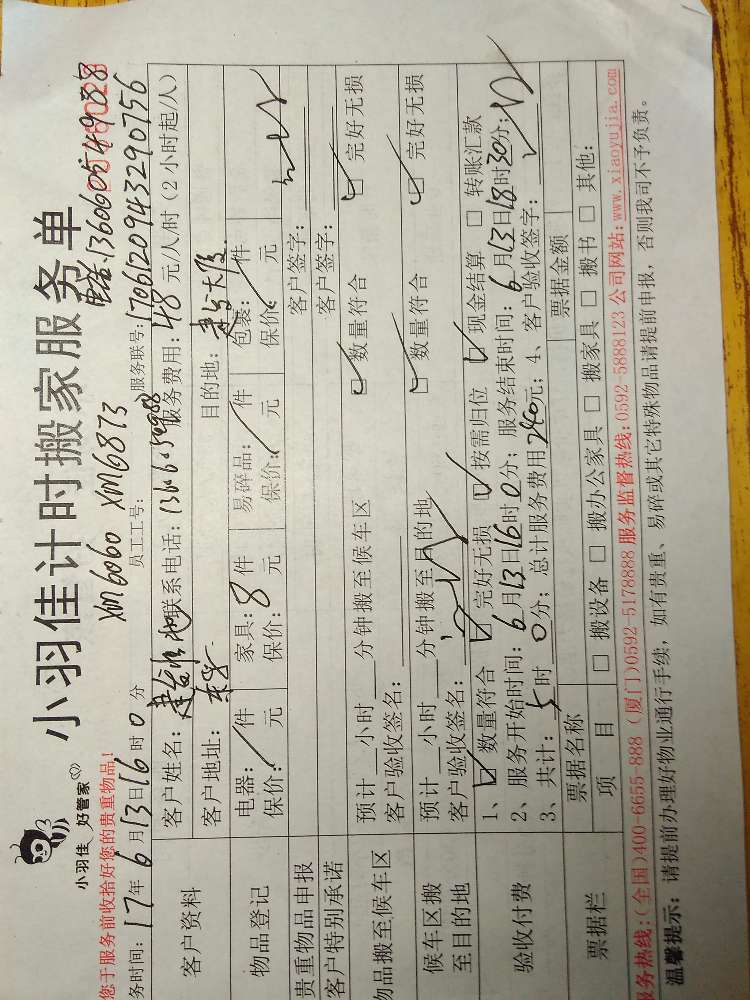 小羽佳 好管家
小羽佳计时搬家服务单
电话:13606054988
您于服务前收拾好您的贵重物品!
XM6060 XM6873
务时间: 17年6月13日16时0分 员工工号: 服务联号: 17061209432907​56
客户资料
客户姓名: 联系电话: 13606054988 服务费用: 48元/人/时 (2小时起/人)
客户地址: 目的地:
物品登记
电器: / 件 家具: 8 件 易碎品: / 件 包装: / 件
保价: 元 保价: 元 保价: / 元 保价: / 元
贵重物品申报 客户签字:
客户特别承诺 客户签字:
物品搬至候车区
预计 小时 分钟搬至候车区 数量符合 完好无损
客户验收签名:
候车区搬至目的地
预计 小时 分钟搬至目的地 数量符合 完好无损
客户验收签名:
验收付费
1、 数量符合 完好无损 按需归位 现金结算 转账汇款
2、服务开始时间: 6月13日16时0分; 服务结束时间: 6月13日18时30分;
3、共计: 5时0分; 总计服务费用240元; 4、客户验收签字:
票据栏
票据名称 票据金额
项目 搬设备 搬办公家具 搬家具 搬书 其他:
服务热线:(全国)400-6655-888 (厦门)0592-5178888 服务监督热线:0592-5888123 公司网站:www.xiaoyujia.com
温馨提示: 请提前办理好物业通行手续, 如有贵重、易碎或其它特殊物品请提前申报, 否则我司不予负责。